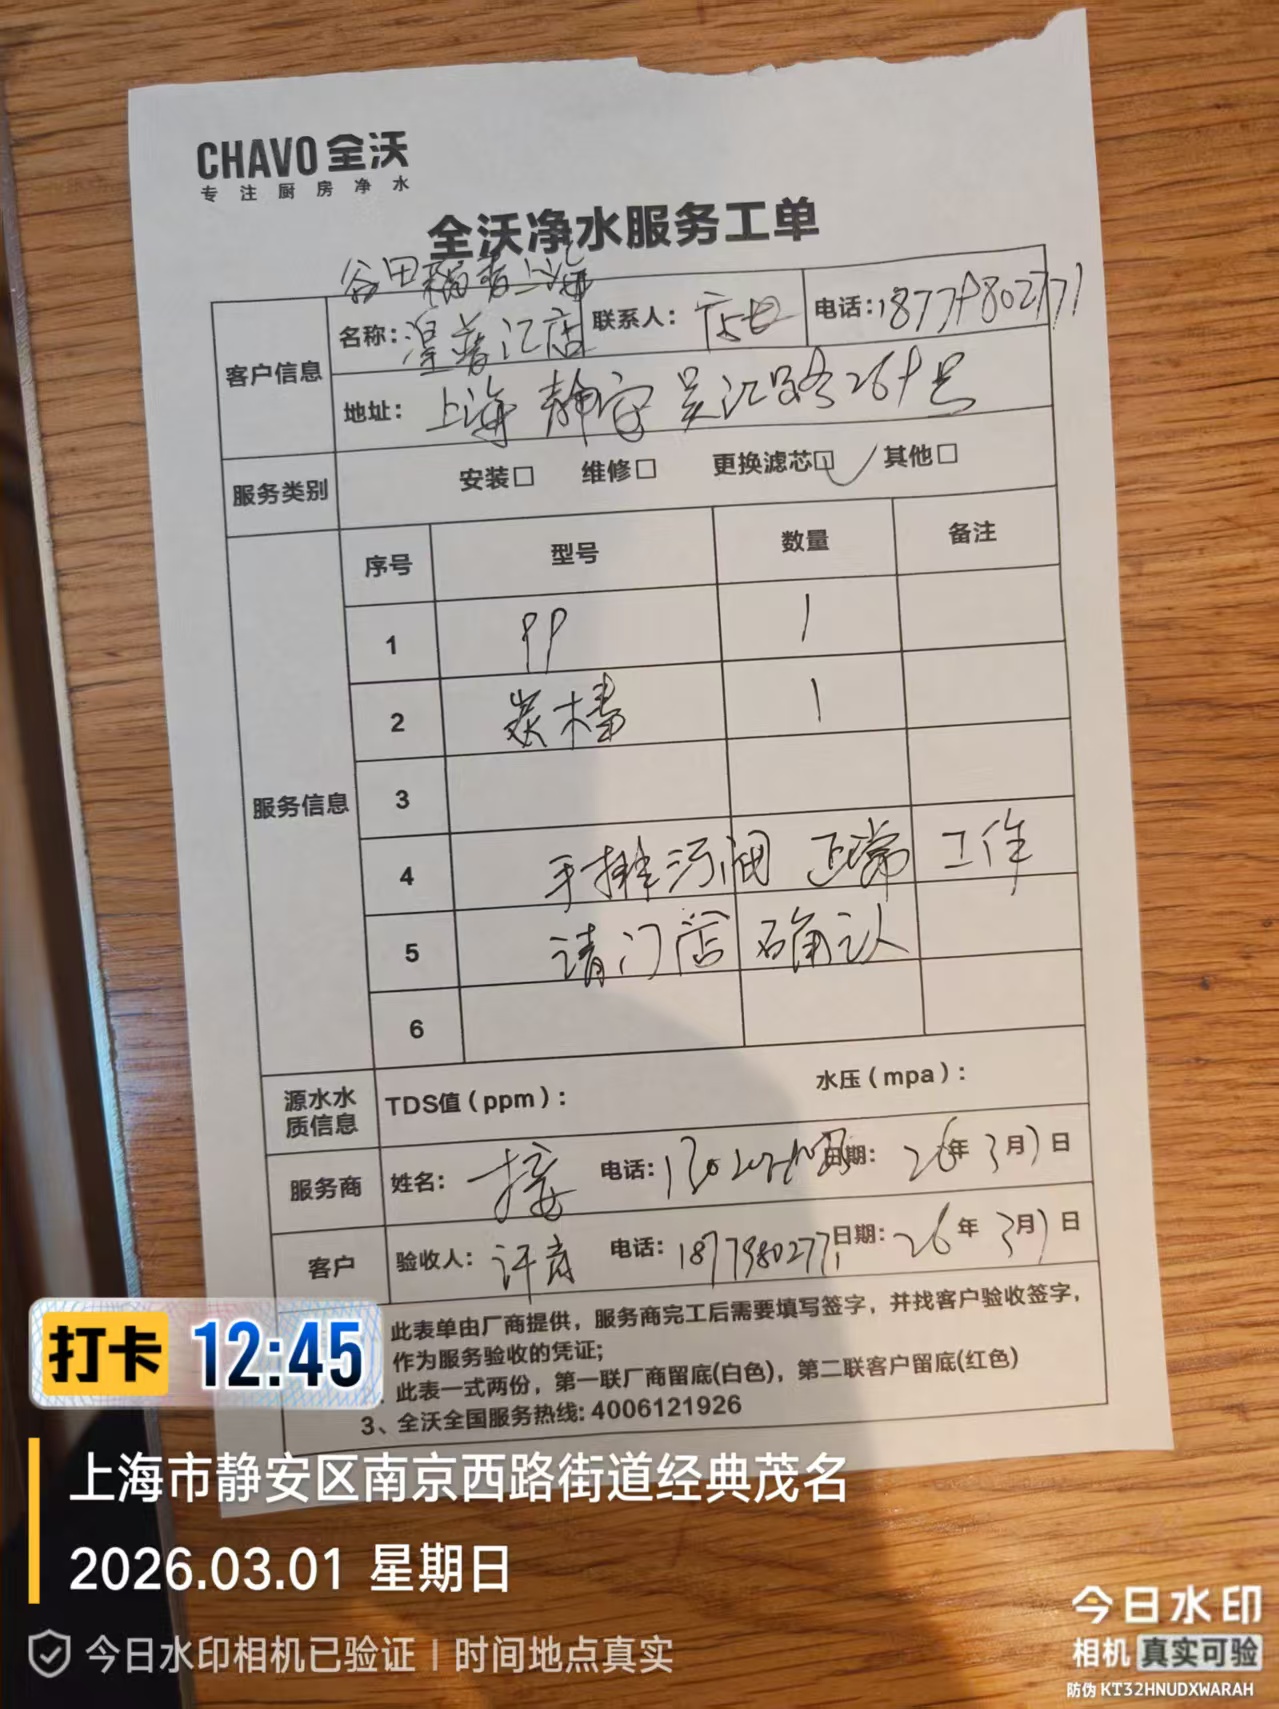 CHAVO 全沃
专注厨房净水
全沃净水服务工单
谷田稻香上海
客户信息 名称: 江店 联系人: 店长 电话:18779802771
地址: 上海 静安 吴江路269号
服务类别 安装□ 维修□ 更换滤芯□✓ 其他□
服务信息 序号 型号 数量 备注
1 PP 1
2 炭棒 1
3
4 手排污阀 正常 工作
5 请门店 确认
6
源水水质信息 TDS值（ppm）: 水压（mpa）:
服务商 姓名: 电话: 日期: 26年3月1日
客户 验收人: 许 电话: 18779802771 日期: 26年3月1日
此表单由厂商提供，服务商完工后需要填写签字，并找客户验收签字，
作为服务验收的凭证;
此表一式两份，第一联厂商留底(白色)，第二联客户留底(红色)
3、全沃全国服务热线: 4006121926
打卡 12:45
上海市静安区南京西路街道经典茂名
2026.03.01 星期日
今日水印相机已验证 | 时间地点真实
今日水印
相机 真实可验
防伪 KT32HNUDXWARAH